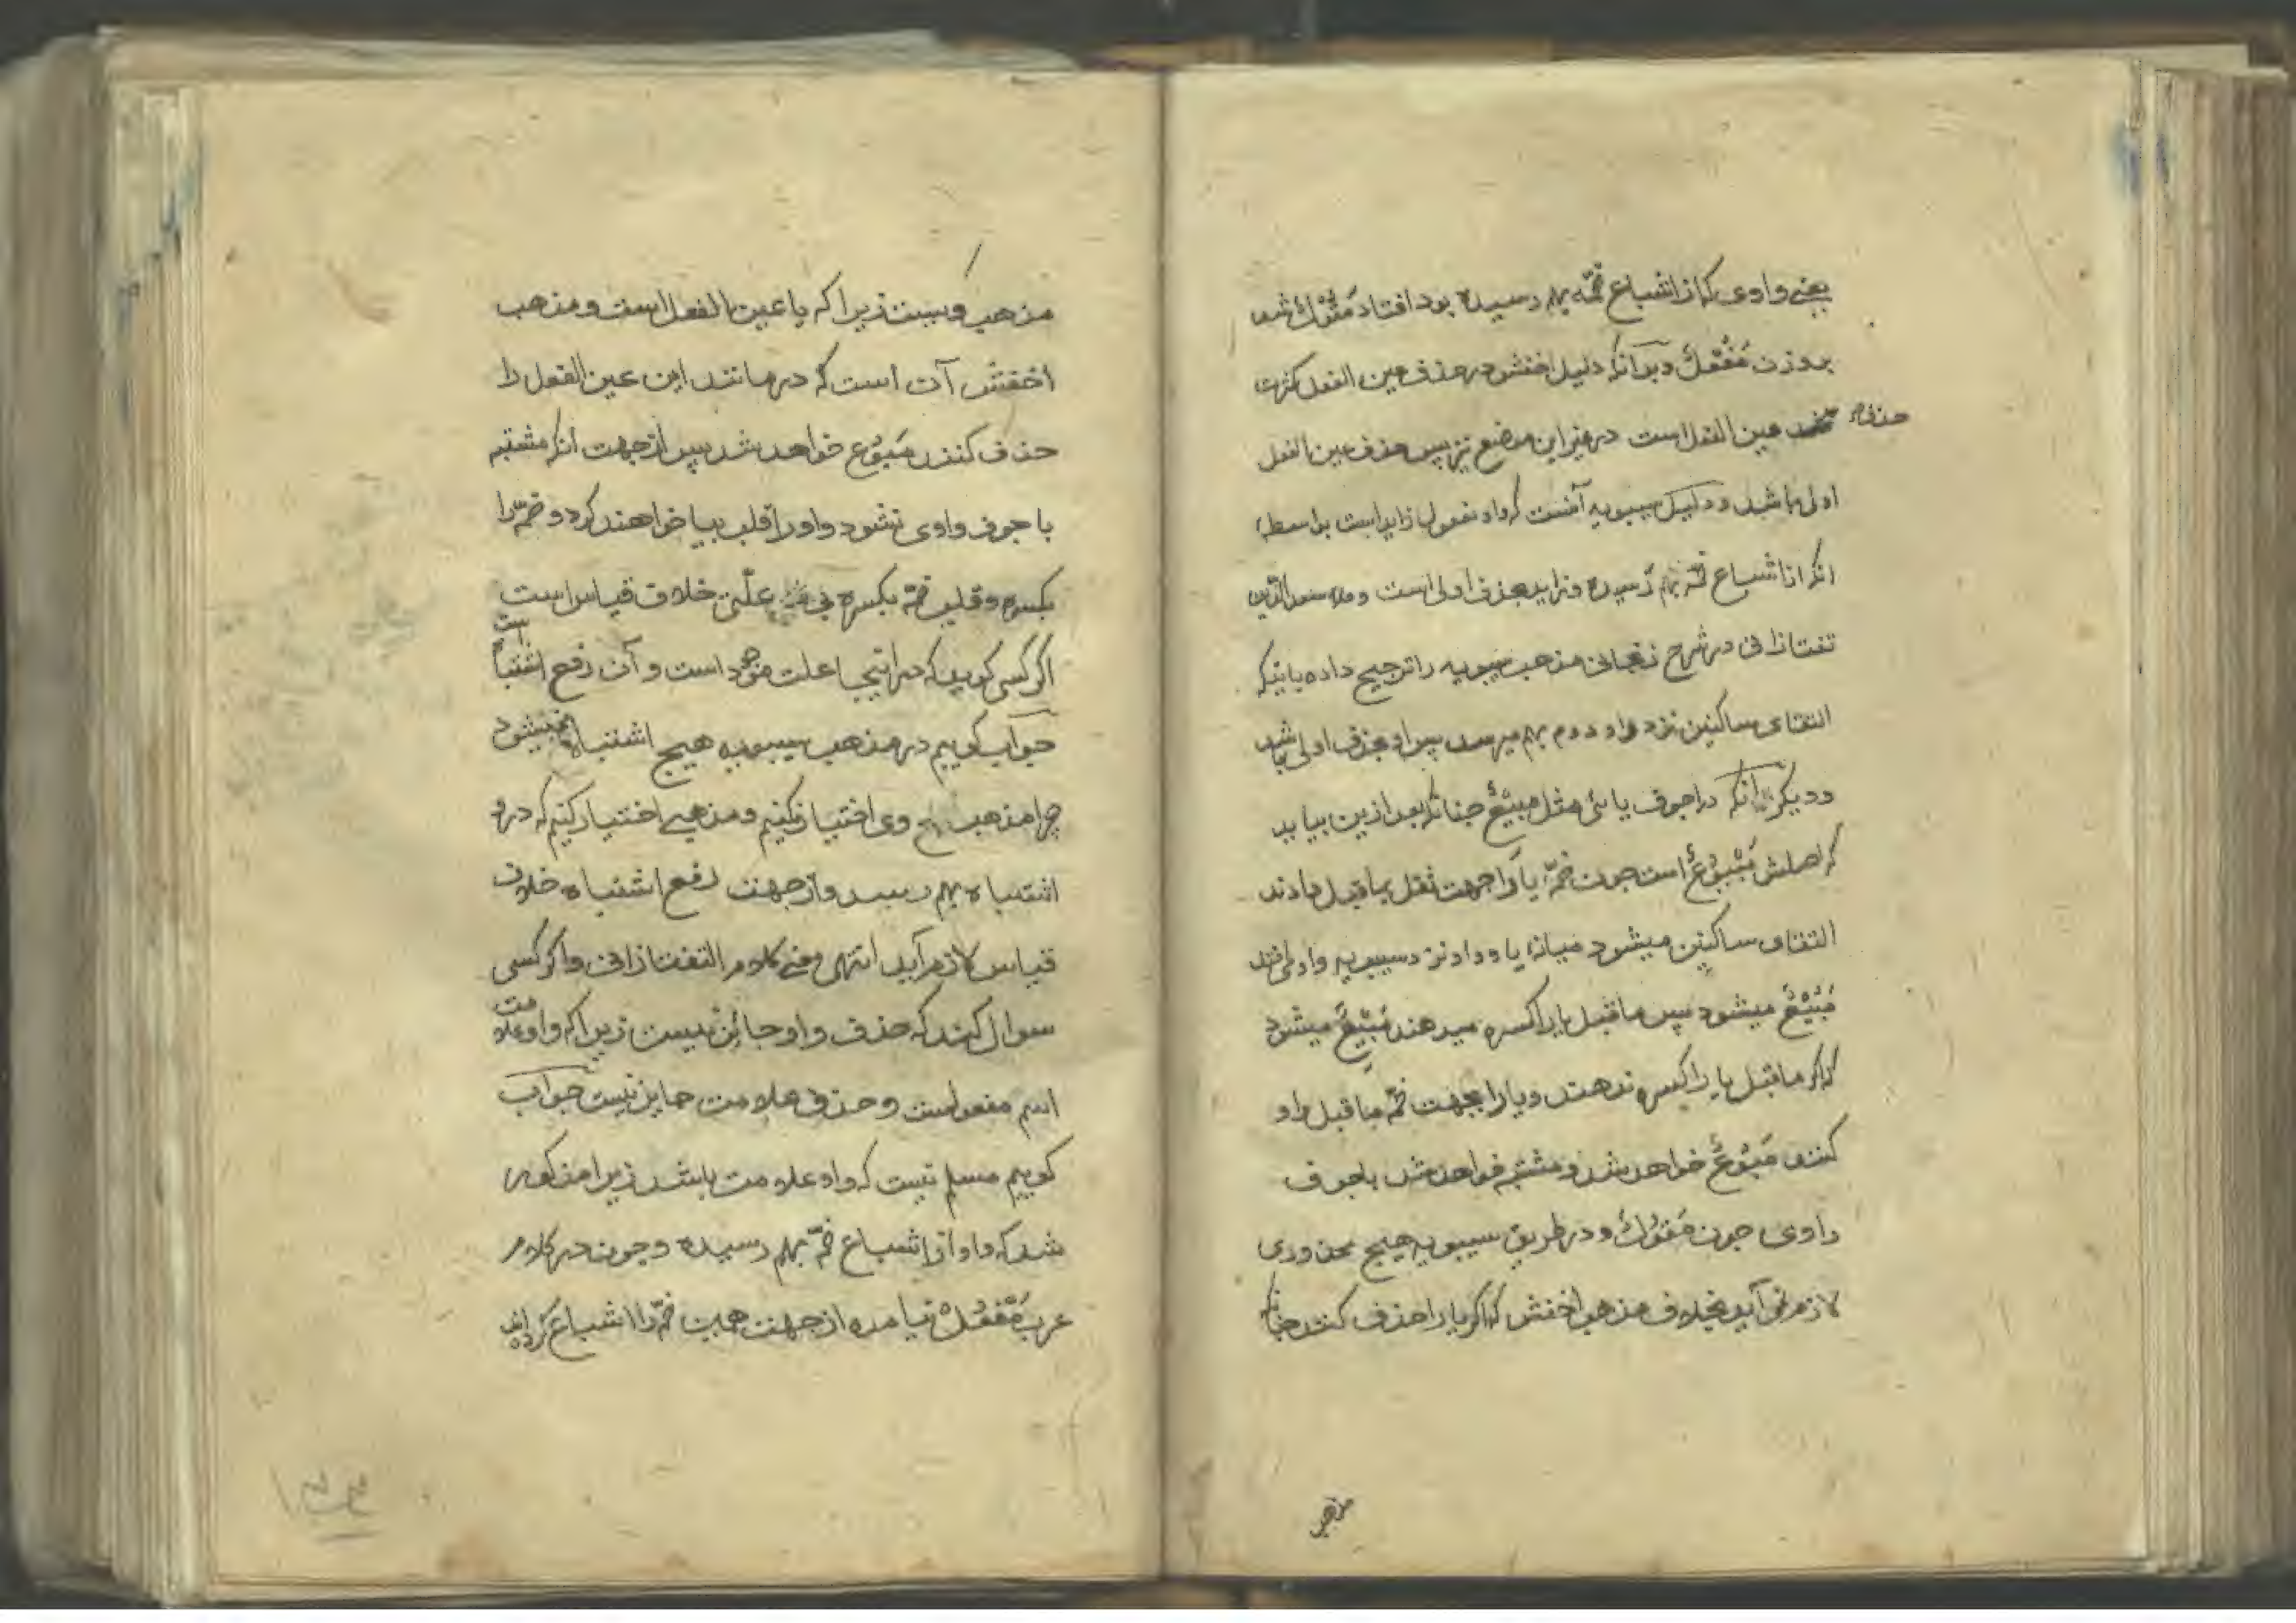 یعنی واوی که از اشباع ضمّه بهم رسیده بود افتاد مَقُوْلٌ شد
بروزن مَفُعْلٌ و بدانکه دلیل اخفش در حذف عین الفعل کثرت
حذف عین الفعل است در غیر این موضع نیز پس حذف عین الفعل
اولی باشد و دلیل سیبویه آنست که واو مفعول زاید است بواسطهٔ
انکه از اشباع ضمّه بهم رسیده و زاید بحذف اولی است و ملا سعد الدّین
تفتازانی در شرح زنجانی مذهب سیبویه را ترجیح داده باینکه
التقای ساکنین نزد واو دوم بهم میرسد پس او بحذف اولی باشد
و دیگر انکه در اجوف یائی مثل مبیْعٌ چنانکه بعد ازین بیاید
که اصلش مَبْیُوْعٌ است چون ضمّهٔ یا را جهت ثقل بماقبل دادند
التقای ساکنین میشود میانهٔ یا و واو نزد سیبویه واو می افتد
مَبُیْعٌ میشود پس ماقبل یا را کسره میدهند مَبِیْعٌ میشود
که اگر ماقبل یا را کسره ندهند و یا را بجهت ضمّه ماقبل واو
کنند مَبُوْعٌ خواهد شد و مشتبه خواهد شد باجوف
واوی چون مَقُوْلٌ و در طریق سیبویه هیچ محذوری
لازم نمی آید بخلاف مذهب اخفش که اگر یا را حذف کنند چنانکه
مذهب
مذهب ویست زیرا که یا عین الفعل است و مذهب
اخفش آن است که در مانند این عین الفعل را
حذف کنند مَبُوْع خواهد شد پس از جهت انکه مشتبه
باجوف واوی نشود واو را قلب بیا خواهند کرد و ضمّه را
بکسره و قلب ضمّه بکسره بی علّتی خلاف قیاس است
اگر کسی گوید که در اینجا علت موجود است و آن رفع اشتباه است
جواب گوییم در مذهب سیبویه هیچ اشتباه نمیشود
چرا مذهب وی اختیار نکنیم و مذهبی اختیار کنیم که درو
اشتباه بهم رسد و از جهت رفع اشتباه خلاف
قیاس لازم آید انتهی معنی کلام التفتازانی و اگر کسی
سوال کند که حذف واو جائز نیست زیرا که واو علامت
اسم مفعولست و حذف علامت جایز نیست جواب
گوییم مسلم نیست که واو علامت باشد زیرا مذکور
شد که واو از اشباع ضمّه بهم رسیده و چون در کلام
عرب مَفْعُلٌ نیامده از جهت همین ضمّه را اشباع کرده اند